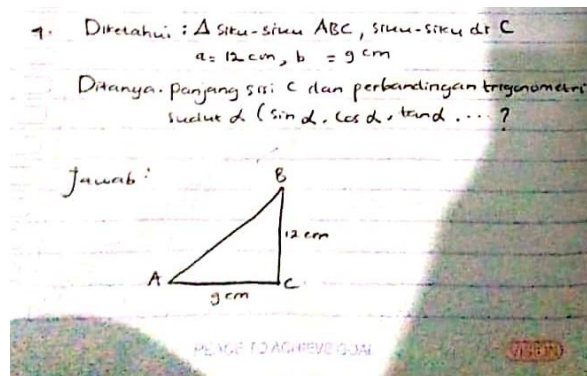 1. Diketahui : Δ siku-siku ABC, siku-siku di C
a = 12 cm, b = 9 cm
Ditanya. panjang sisi c dan perbandingan trigonometri
sudut α (sin α, cos α, tan α .... ?
Jawab :
B
12 cm
A
C
9 cm
PEACE TO ACHIEVE GOAL
VISION